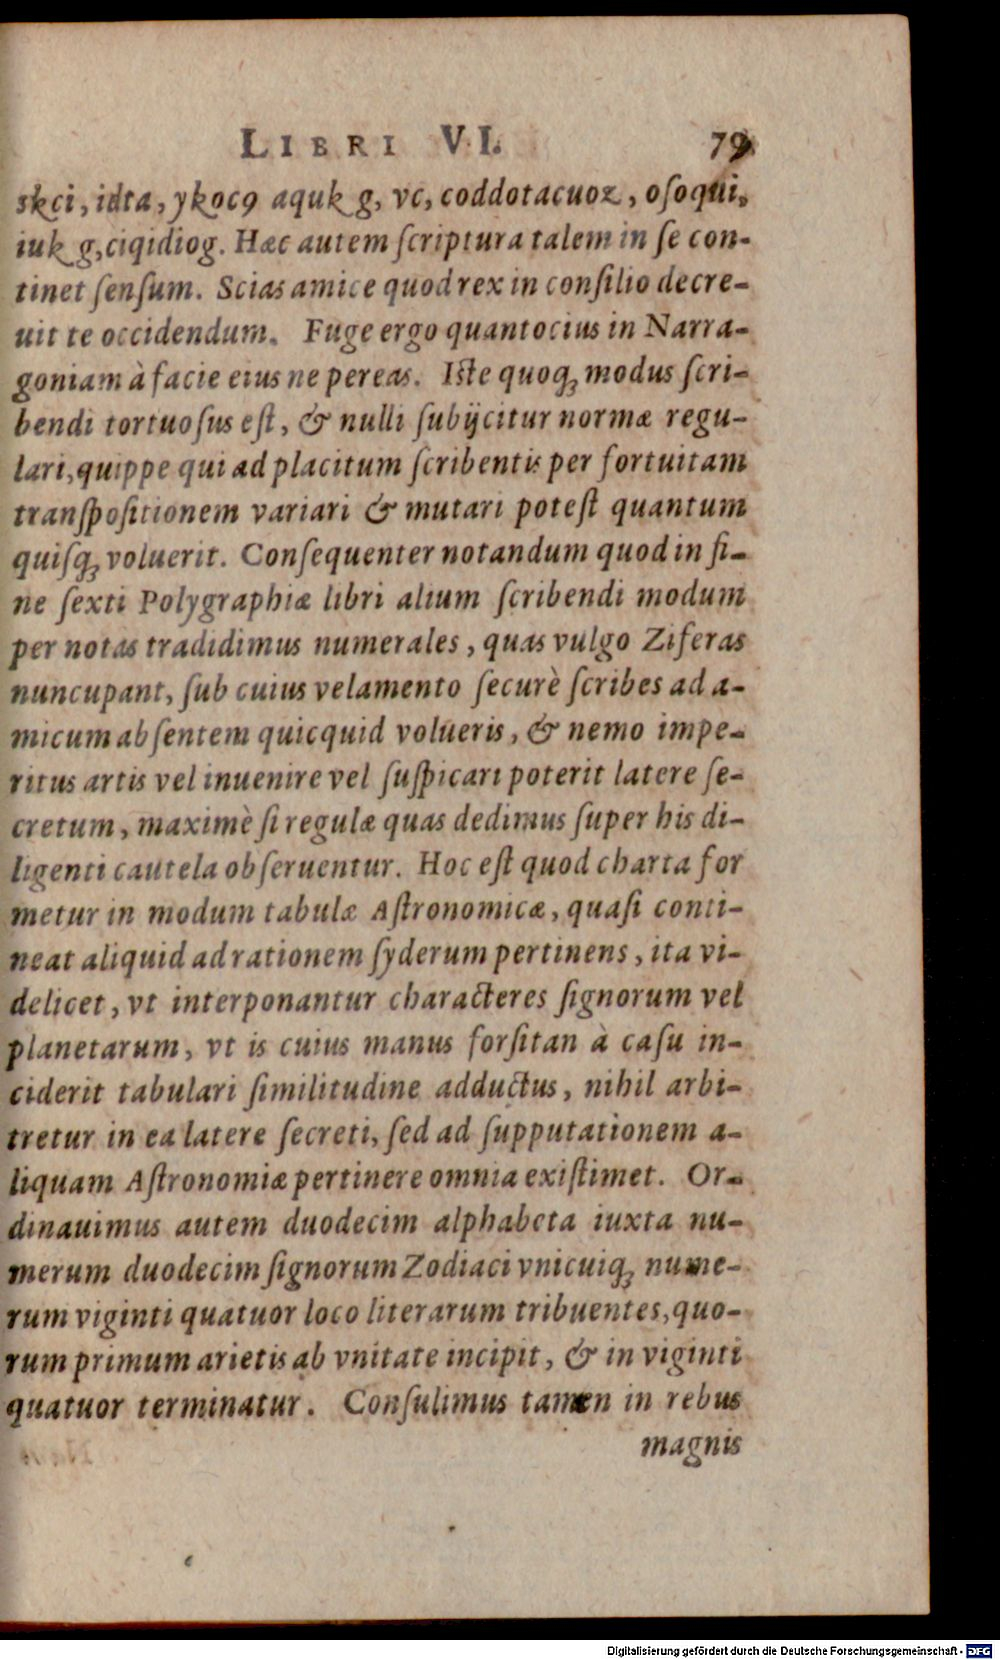 LIBRI VI. 79
skci, idta, ykoc9 aquk g, vc, coddotacuoz, oſoqui,
iuk g,ciqidiog. Hæc autem ſcriptura talem in ſe con-
tinet ſenſum. Scias amice quod rex in conſilio decre-
uit te occidendum. Fuge ergo quantocius in Narra-
goniam à facie eius ne pereas. Iſte quoq; modus ſcri-
bendi tortuoſus eſt, & nulli ſubijcitur normæ regu-
lari, quippe qui ad placitum ſcribentis per fortuitam
tranſpoſitionem variari & mutari poteſt quantum
quiſq; voluerit. Conſequenter notandum quod in fi-
ne ſexti Polygraphiæ libri alium ſcribendi modum
per notas tradidimus numerales, quas vulgo Ziferas
nuncupant, ſub cuius velamento ſecurè ſcribes ad a-
micum abſentem quicquid volueris, & nemo impe-
ritus artis vel inuenire vel ſuſpicari poterit latere ſe-
cretum, maximè ſi regulæ quas dedimus ſuper his di-
ligenti cautela obſeruentur. Hoc eſt quod charta for
metur in modum tabulæ Aſtronomicæ, quaſi conti-
neat aliquid ad rationem ſyderum pertinens, ita vi-
delicet, vt interponantur characteres ſignorum vel
planetarum, vt is cuius manus forſitan à caſu in-
ciderit tabulari ſimilitudine adductus, nihil arbi-
tretur in ea latere ſecreti, ſed ad ſupputationem a-
liquam Aſtronomiæ pertinere omnia exiſtimet. Or-
dinauimus autem duodecim alphabeta iuxta nu-
merum duodecim ſignorum Zodiaci vnicuiq; nume-
rum viginti quatuor loco literarum tribuentes, quo-
rum primum arietis ab vnitate incipit, & in viginti
quatuor terminatur. Conſulimus tamen in rebus
magnis
Digitalisierung gefördert durch die Deutsche Forschungsgemeinschaft - DFG